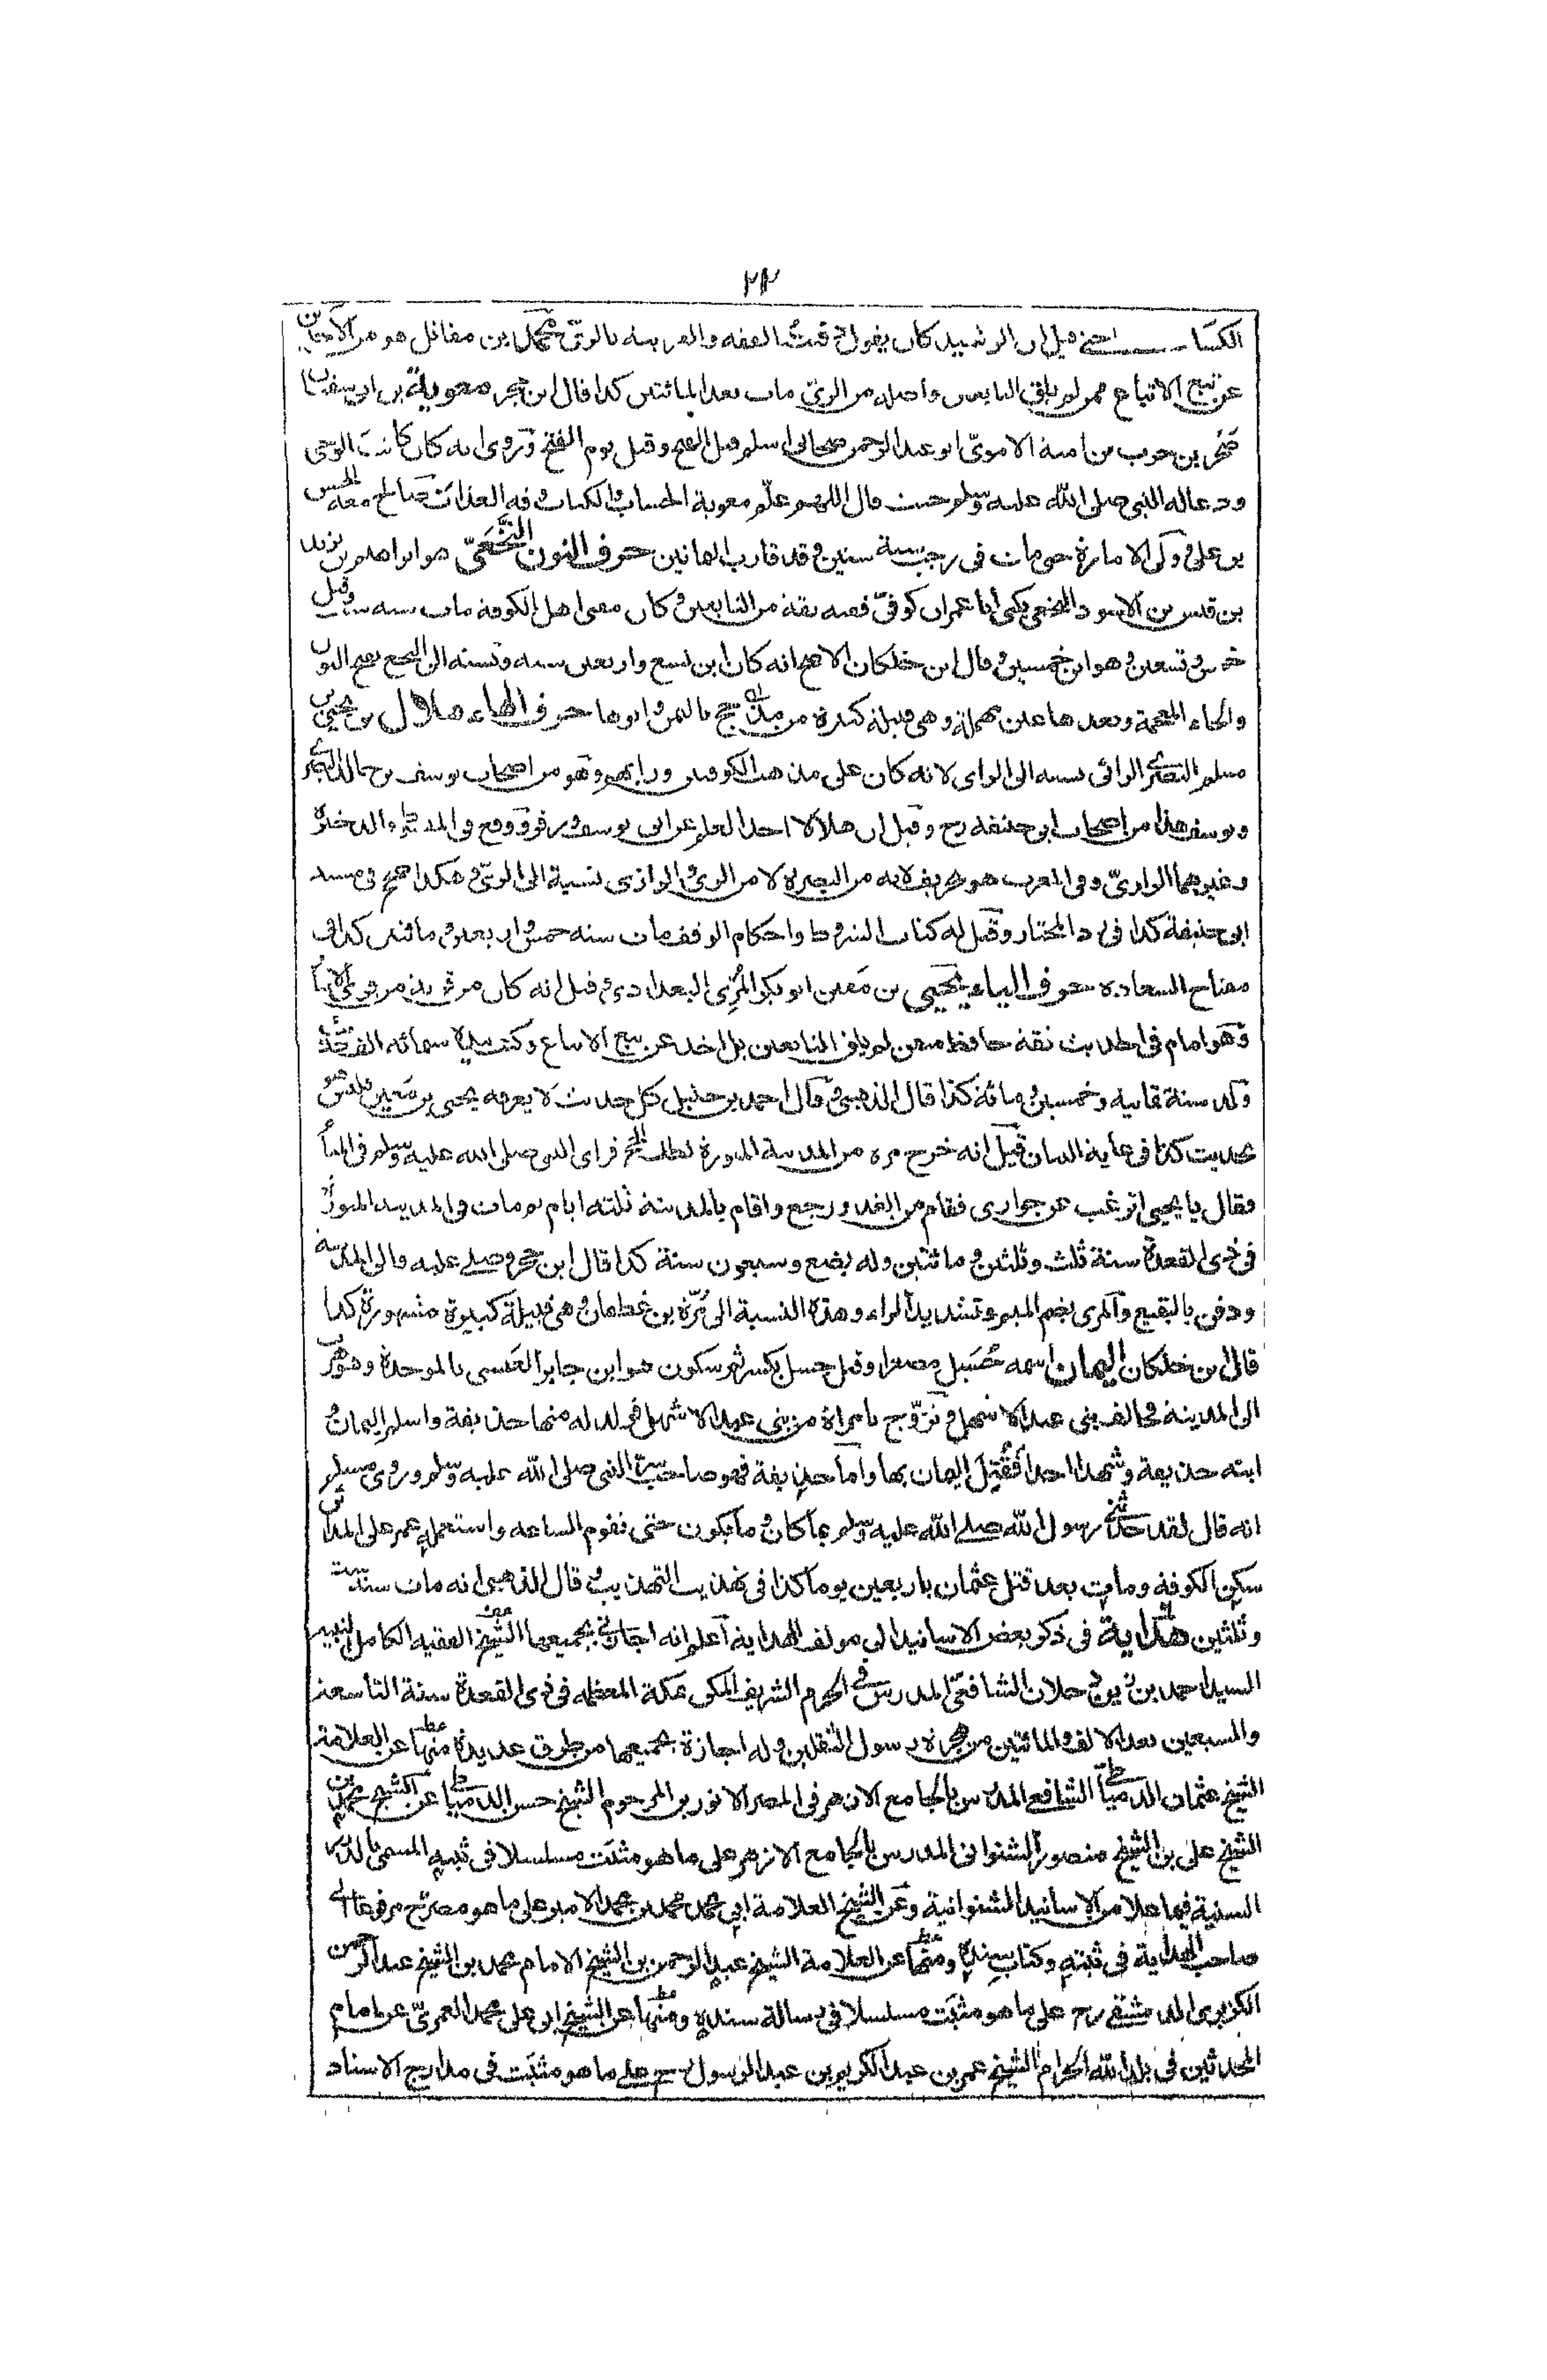 ٢٢
الكسا حتى قيل ان الرشيد كان يقول دفنت الفقه والعربية بالريّ محمد بن مقاتل هو من الاخذين
عن تبع الاتباع ممن لم يلق التابعين واصله من الريّ مات بعد المائتين كذا قال ابن حجر معوية بن ابى سفيان
صخر بن حرب بن امية الاموىّ ابو عبد الرحمن صحابى اسلم قبل الفتح وقيل يوم الفتح وروى انه كان كاتب الوحى
ودعا له النبى صلى الله عليه وسلم حيث قال اللهم علّم معوية الحساب والكتاب وقه العذاب صالح معه الحسن
بن على وولى الامارة حتى مات فى رجب سنة ستين وقد قارب الثمانين حرف النون النخعىّ هو ابراهيم بن يزيد
بن قيس بن الاسود النخعى يكنى ابا عمران كوفىّ فقيه ثقة من التابعين وكان مفتى اهل الكوفة مات سنة ست وقيل
خمس وتسعين وهو ابن خمسين وقال ابن خلكان الاصح انه كان ابن تسع واربعين سنة ونسبته الى النخع بفتح النون
والخاء المعجمة وبعدها عين مهملة وهى قبيلة كبيرة من مذحج باليمن حرف الهاء هلال بن يحيى بن
مسلم البصرى الرائى نسبة الى الراى لانه كان على مذهب الكوفيين ورايهم وهو من اصحاب يوسف بن خالد
ويوسف هذا من اصحاب ابى حنيفة رح وقيل ان هلالا اخذ العلم عن ابى يوسف وزفر ووقع فى المبسوط والذخيرة
وغيرهما الرازىّ وفى المغرب هو تحريف لانه من البصرة لا من الرى والرازى نسبة الى الرىّ وهكذا صحح فى مسند
ابى حنيفة كذا فى رد المحتار وقيل له كتاب الشروط واحكام الوقف مات سنة خمس واربعين ومائتين كذا فى
مفتاح السعادة حرف الياء يحيى بن معين ابو بكر المرّى البغدادى قيل انه كان من قرية من قرى الانبار
وهو امام فى الحديث ثقة حافظ متقن لم يلق التابعين بل اخذ عن تبع الاتباع وكتب بيده ستمائة الف حديث
ولد سنة ثمانية وخمسين ومائة كذا قال الذهبى وقال احمد بن حنبل كل حديث لا يعرفه يحيى بن معين فليس هو
بحديث كذا فى غاية البيان قيل انه خرج مرة من المدينة المنورة لطلب الحج فراى النبى صلى الله عليه وسلم فى المنام
فقال يا يحيى اترغب عن جوارى فقام من الغد ورجع واقام بالمدينة ثلثة ايام ثم مات فى المدينة المنورة
فى ذى القعدة سنة ثلث وثلثين ومائتين وله بضع وسبعون سنة كذا قال ابن حجر وصلى عليه والى المدينة
ودفن بالبقيع والمرى بضم الميم وتشديد الراء وهذه النسبة الى مرّة بن غطفان وهى قبيلة كبيرة مشهورة كذا
قال ابن خلكان اليمان اسمه حُسَيل مصغرا وقيل حسل بكسر ثم سكون هو ابن جابر العبسى بالموحدة وهو هرب
الى المدينة وحالف بنى عبد الاشهل وتزوّج بامراة من بنى عبد الاشهل فولد له منها حذيفة واسلم اليمان و
ابنه حذيفة وشهدا احدا فقُتِل اليمان بها واما حذيفة فهو صاحب سرّ النبى صلى الله عليه وسلم وروى مسلم
انه قال لقد حدثنى رسول الله صلى الله عليه وسلم بما كان وما يكون حتى تقوم الساعة واستعمله عمر على المدائن
سكن الكوفة ومات بعد قتل عثمان باربعين يوما كذا فى تهذيب التهذيب وقال الذهبى انه مات سنة ست
وثلثين هداية فى ذكر بعض الاسانيد الى مولف الهداية اعلم انه اجازنى بجميعها الشيخ الفقيه الكامل النبيه
السيد احمد بن زين دحلان الشافعىّ المدرس فى الحرم الشريف المكى بمكة المعظمة فى ذى القعدة سنة التاسعة
والسبعين بعد الالف والمائتين من هجرة رسول الثقلين وله اجازة بجميعها من طرق عديدة منها عن العلامة
الشيخ عثمان الدمياطى الشافعى المدرس بالجامع الازهر فى المصر الانور بن المرحوم الشيخ حسن الدمياطى عن الشيخ محمد بن
الشيخ على بن الشيخ منصور الشنوانى المدرس بالجامع الازهر على ما هو مثبَت مسلسلا فى ثبته المسمى بالدرر
السنية فيما علا من الاسانيد الشنوانية وعن الشيخ العلامة ابى محمد محمد بن محمد الامير على ما هو مصرّح مرفوعا الى
صاحب الهداية فى ثبته وكتاب سنده ومنها عن العلامة الشيخ عبد الرحمن بن الشيخ الامام محمد بن الشيخ عبد الرحمن
الكزبرى الدمشقى رح على ما هو مثبَت مسلسلا فى رسالة سنده ومنها عن الشيخ ابى على محمد العمرىّ عن امام
المحدثين فى بلد الله الحرام الشيخ عمر بن عبد الكريم بن عبد الرسول رح على ما هو مثبَت فى مدارج الاسناد